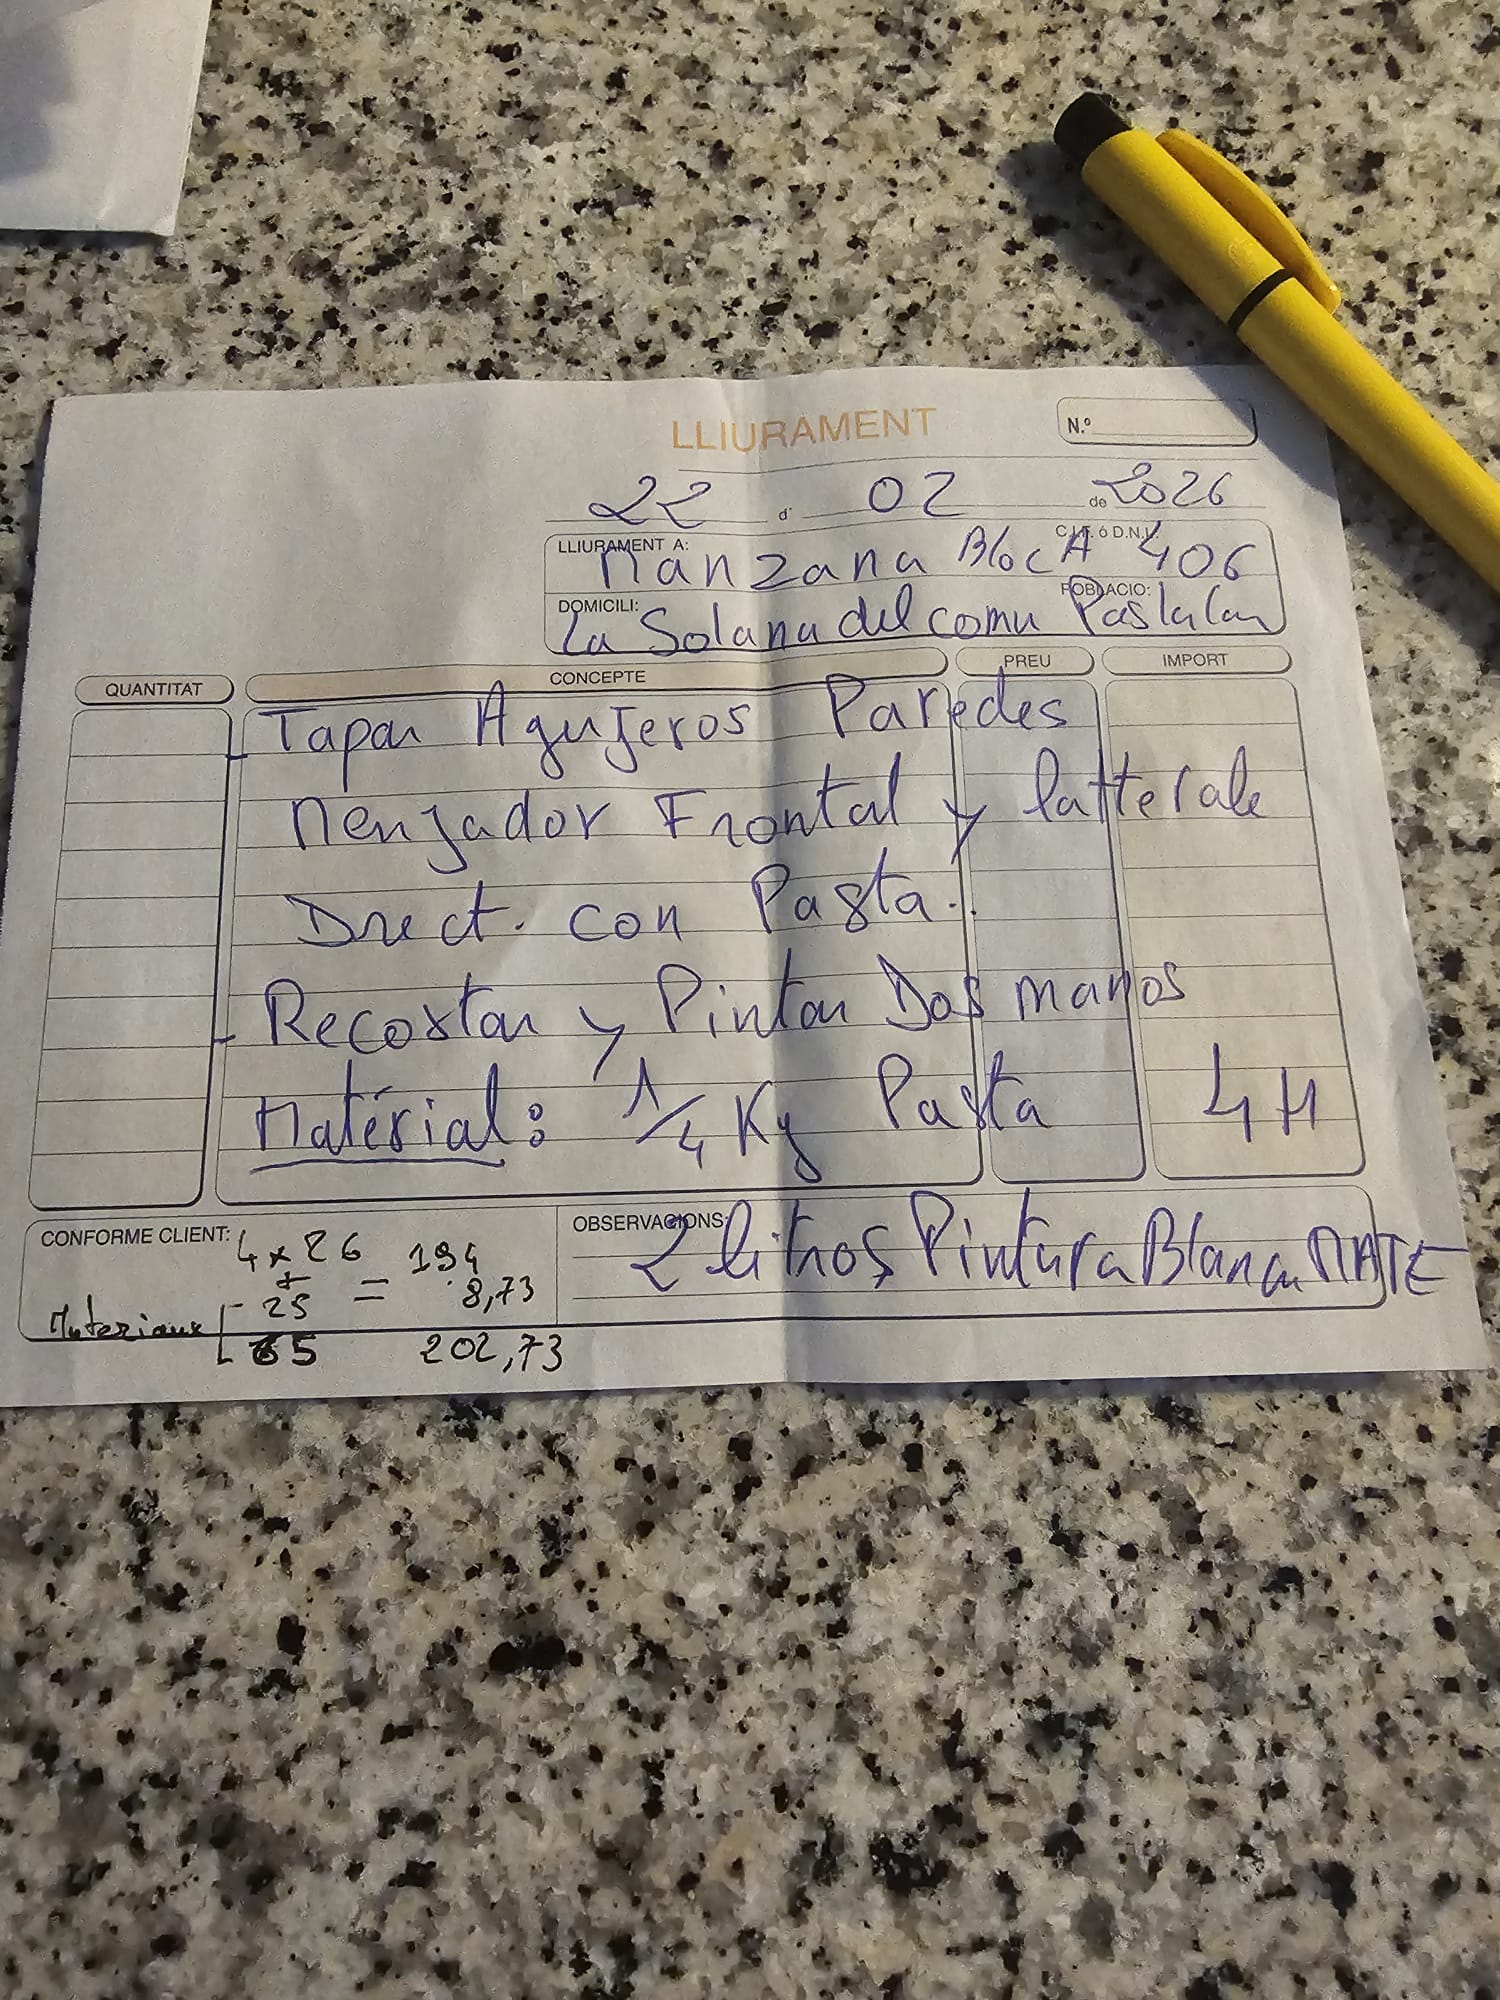 LLIURAMENT
N.º
22 d' 02 de 2026
LLIURAMENT A: Manzana Bloc A 406 C.I.F. ó D.N.I.:
DOMICILI: La Solana del comu POBLACIO:
QUANTITAT CONCEPTE PREU IMPORT
- Tapar Agujeros Paredes
Menjador Frontal y latterale
con Pasta.
- y Pintar Dos manos
Matérial: 1/4 Kg Pasta 4H
CONFORME CLIENT: OBSERVACIONS: 2 litros Pintura Blanca MATE
4 x 26 194
+
25 = 8,73
65 202,73